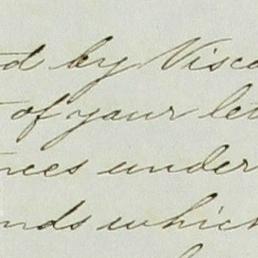 d by Visco
of your let
nces under
nds which